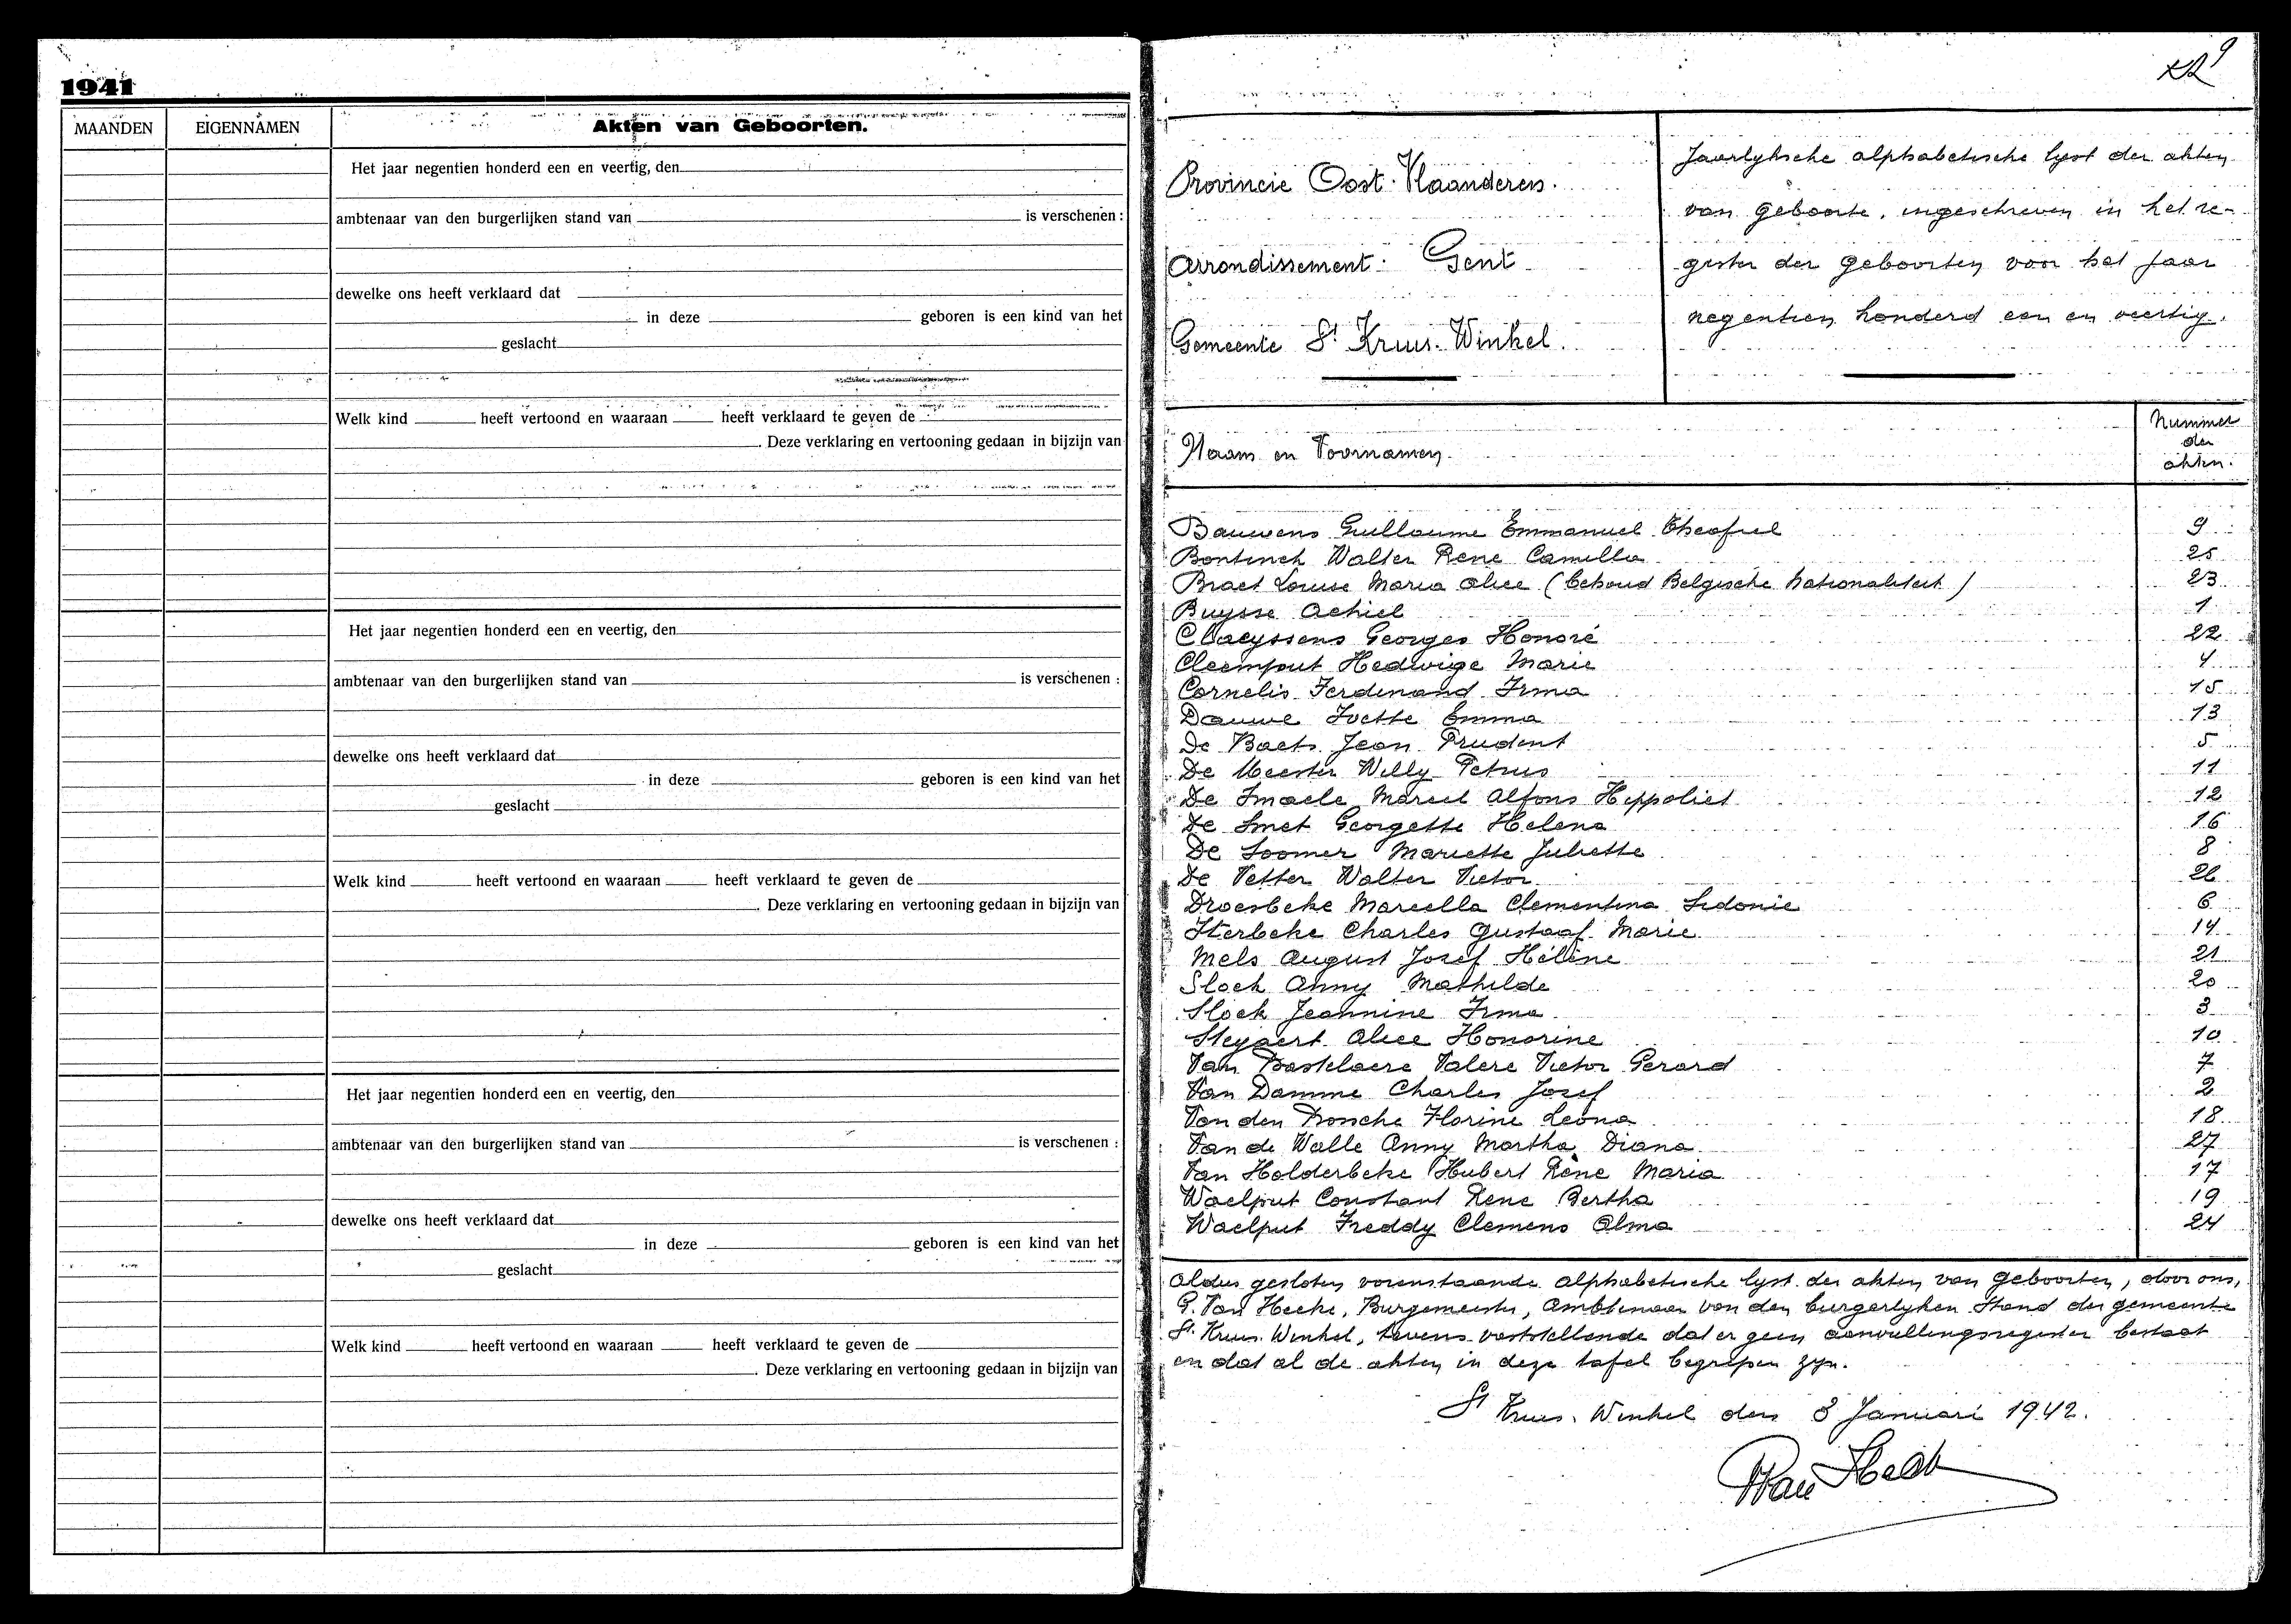 1941
MAANDEN EIGENNAMEN Akten van Geboorten.
Het jaar negentien honderd een en veertig, den
ambtenaar van den burgerlijken stand van is verschenen :
dewelke ons heeft verklaard dat
in deze geboren is een kind van het
geslacht
Welk kind heeft vertoond en waaraan heeft verklaard te geven de
Deze verklaring en vertooning gedaan in bijzijn van
Het jaar negentien honderd een en veertig, den
ambtenaar van den burgerlijken stand van is verschenen :
dewelke ons heeft verklaard dat
in deze geboren is een kind van het
geslacht
Welk kind heeft vertoond en waaraan heeft verklaard te geven de
Deze verklaring en vertooning gedaan in bijzijn van
Het jaar negentien honderd een en veertig, den
ambtenaar van den burgerlijken stand van is verschenen :
dewelke ons heeft verklaard dat
in deze geboren is een kind van het
geslacht
Welk kind heeft vertoond en waaraan heeft verklaard te geven de
Deze verklaring en vertooning gedaan in bijzijn van
9
Provincie Oost-Vlaanderen.
Arrondissement: Gent
Gemeente St Kruis-Winkel.
Jaarlyksche alphabetische lyst der akten
van geboorte, ingeschreven in het re-
gister der geboorten voor het jaar
negentien honderd een en veertig.
Naam en Voornamen.
Nummer
der
akten.
Bauwens Guillaume Emmanuel Theofiel 9
Bontinck Walter Rene Camilla 25
Braet Louise Maria Alice (behoud Belgische nationaliteit) 23
Buysse Achiel 1
Claeyssens Georges Honoré 22
Cleemput Hedwige Marie 4
Cornelis Ferdinand Irma 15
Dauwe Ivette Emma 13
De Baets Jean Prudent 5
De Meester Willy Petrus 11
De Smaele Marcel Alfons Heppoliet 12
De Smet Georgette Helena 16
De Soomer Mariette Juliette 8
De Vetter Walter Victor 26
Droesbeke Marcella Clementina Sidonie 6
Sterbeke Charles Gustaaf Marie 14
Mels August Josef Hélène 21
Slock Anny Mathilde 20
Slock Jeannine Irma 3
Steyaert Alice Honorine 10
Van Bastelaere Valere Victor Gerard 7
Van Damme Charles Josef 2
Van den Bossche Florine Leona 18
Van de Walle Anny Martha Diana 27
Van Holderbeke Hubert Rène Maria 17
Waelput Constant Rene Bertha 19
Waelput Freddy Clemens Alma 24
Aldus gesloten vorenstaande alphabetische lyst der akten van geboorten, door ons,
G. Van Hecke, Burgemeester, Ambtenaar van den burgerlyken Stand der gemeente
St Kruis-Winkel, tevens vaststellende dat er geen aanvullingsregister bestaat
en dat al de akten in deze tafel begrepen zyn.
St Kruis-Winkel den 8 Januari 1942.